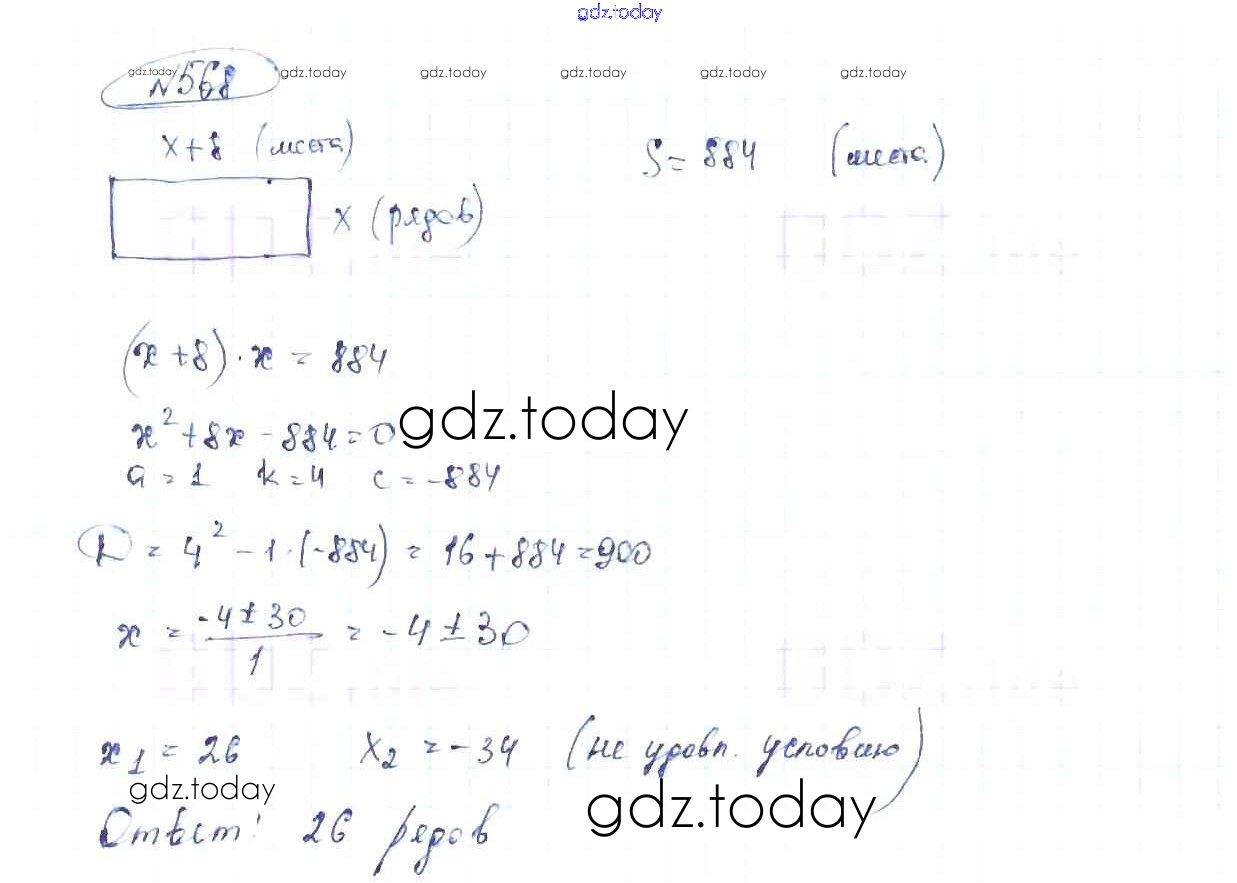 gdz.today
№568
gdz.today gdz.today gdz.today gdz.today gdz.today
x+8 (места) S = 884 (места)
x (рядов)
(x+8)·x = 884
x²+8x-884=0
gdz.today
a=1 k=4 c=-884
D = 4² - 1·(-884) = 16+884=900
x = (-4±30)/1 = -4±30
x₁ = 26 x₂ = -34 (не удовл. условию)
gdz.today gdz.today
Ответ: 26 рядов